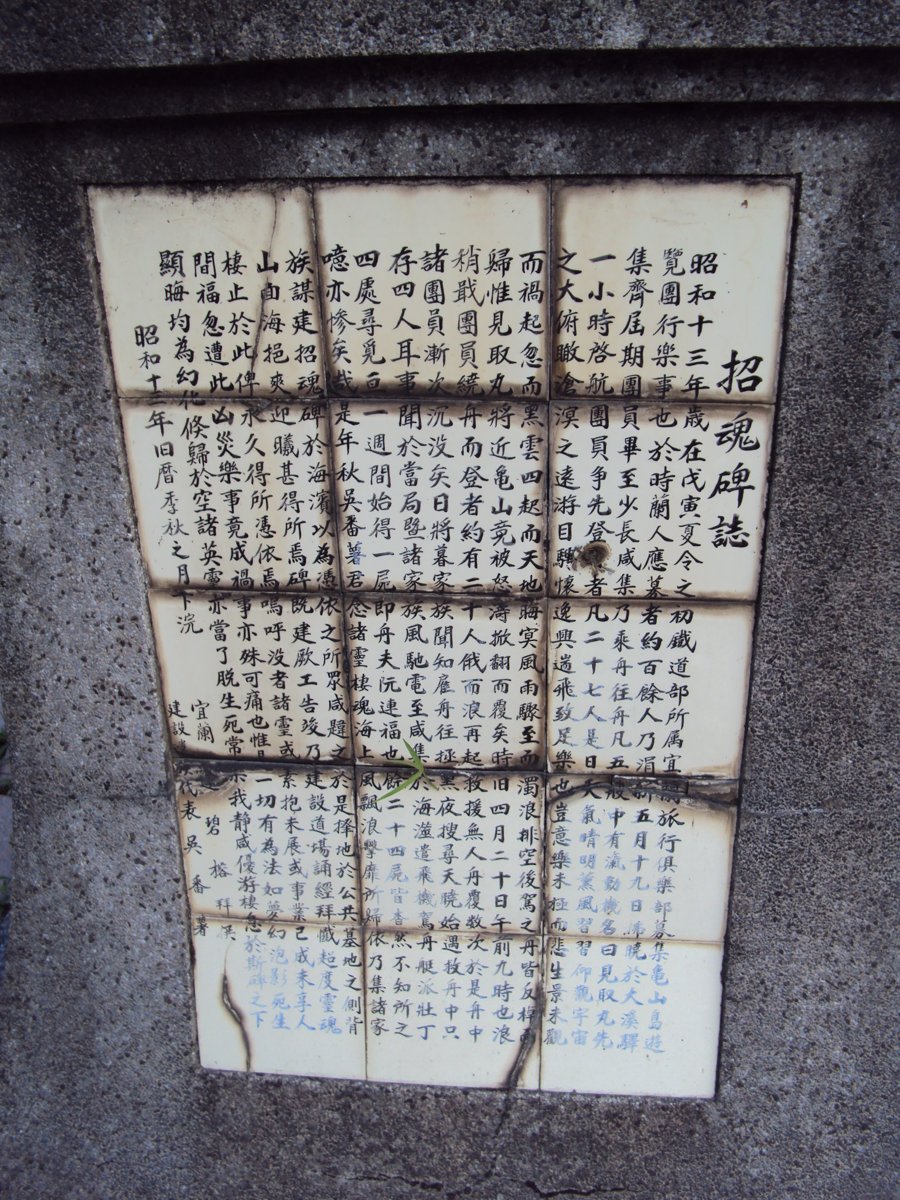 招魂碑誌
昭和十三年歲在戊寅夏令之初鐵道部所属宜蘭旅行俱樂部募集亀山島遊
覽團行樂事也於時蘭人應募者約百餘人乃涓新五月十九日沸曉於大溪驛
集齊屆期團員畢至少長咸集乃乘舟往舟凡五般中有瀛動機名曰見取丸先
一小時啓航團員争先登者凡二十七人是日天氣晴明薰風習習仰觀宇宙
之大俯瞰滄溟之遠游目騁懷逸興遄飛致足樂也豈意樂未極而悲生景未觀
而禍起忽而黑雲四起而天地晦冥風雨驟至而濁浪排空後駕之丹皆反棹而
歸惟見取丸將近亀山竟被怒濤掀翻而覆矣時旧四月二十日午前九時也浪
稍戢團員繞舟而登者約有二十人俄而浪再起救援無人丹覆数次於是舟中
諸團員漸次沉没矣日將暮家族聞知雇舟往拯黑夜搜尋天曉始遇救舟中只
存四人耳事聞於當局暨諸家族風馳電至咸集於海滋遣飛機駕舟艇派壯丁
四處尋覓亘一週間始得一屍即舟夫阮連福也餘二十四屍皆杳然不知所之
噫亦慘矣哉是年秋吳番薯君念諸靈棲魂海上風飄浪擊靡所歸依乃集諸家
族謀建招魂碑於海濱以為憑依之所眾咸韙之於是擇地於公共墓地之側背
山面海挹爽迎曦甚得所焉碑既建厥工告竣乃建設道場誦經拜懺超度靈魂
棲止於此俾永久得所憑依焉嗚呼没者諸靈或素抱未展或事業已成未享人
間福忽遭此凶災樂事竟成禍事亦殊可痛也惟一切有為法如夢幻泡影死生
顯晦均為幻化倏歸於空諸英靈亦當了脱生死常示我静咸優游棲息於斯碑之下
昭和十三年旧暦季秋之月下浣
宜蘭 碧榕拜撰
建設者代表 吳番薯